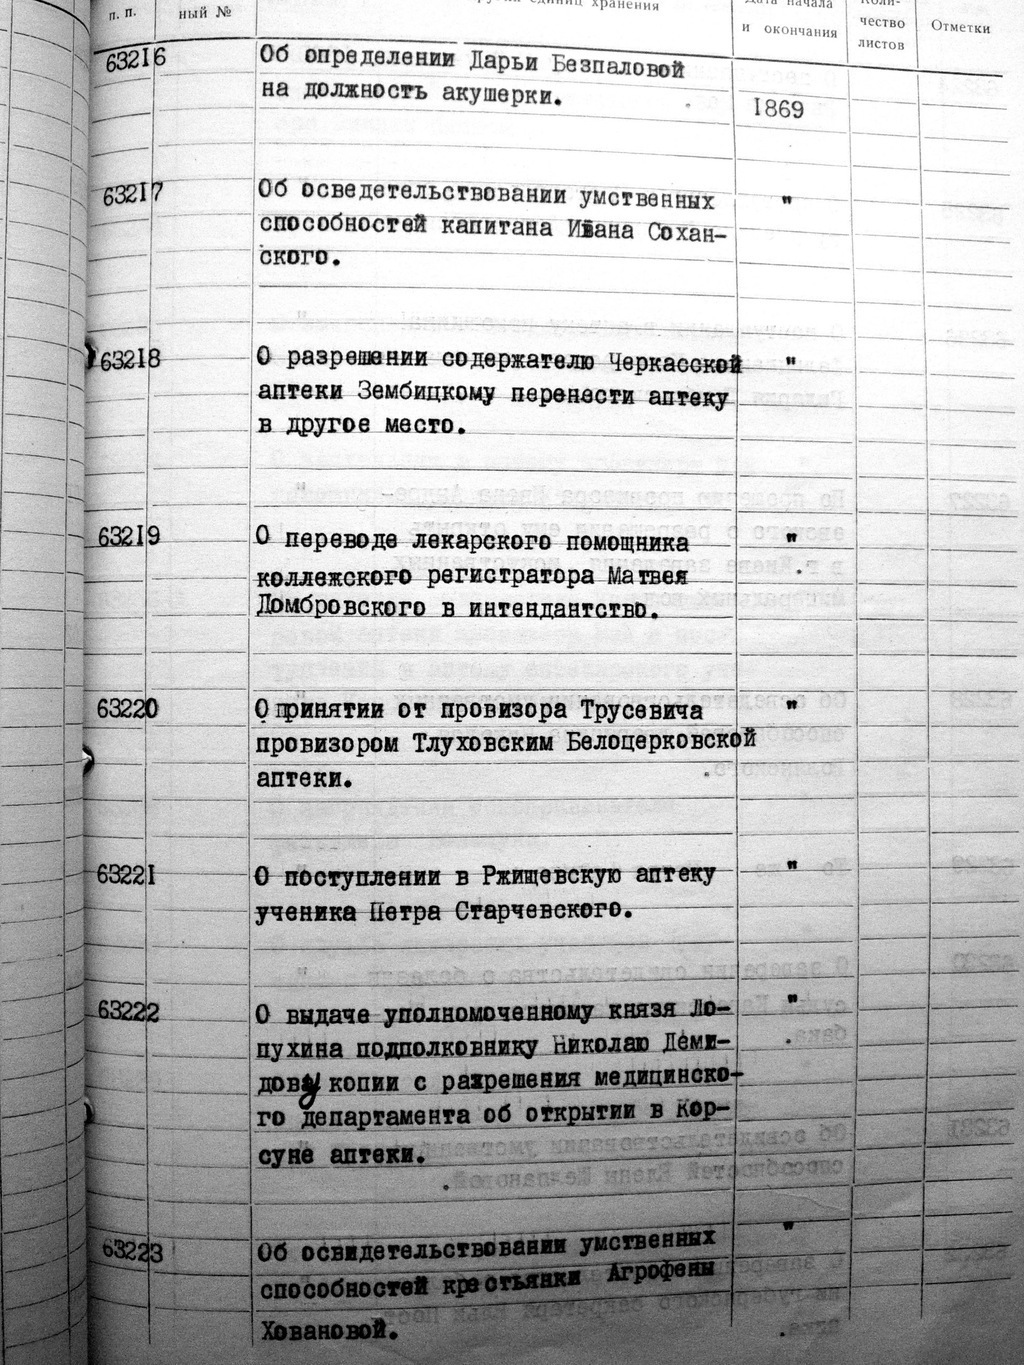 п. п.
ный №
единиц хранения
Дата начала
и окончания
Коли-
чество
листов
Отметки
63216
Об определении Дарьи Безпаловой
на должность акушерки.
1869
63217
Об осведетельствовании умственных "
способностей капитана Ивана Сохан-
ского.
63218
О разрешении содержателю Черкасской "
аптеки Зембицкому перенести аптеку
в другое место.
63219
О переводе лекарского помощника "
коллежского регистратора Матвея
Домбровского в интендантство.
63220
О принятии от провизора Трусевича "
провизором Тлуховским Белоцерковской
аптеки.
63221
О поступлении в Ржищевскую аптеку "
ученика Петра Старчевского.
63222
О выдаче уполномоченному князя Ло- "
пухина подполковнику Николаю Деми-
дову копии с разрешения медицинско-
го департамента об открытии в Кор-
суне аптеки.
63223
Об освидетельствовании умственных "
способностей крестьянки Агрофены
Ховановой.